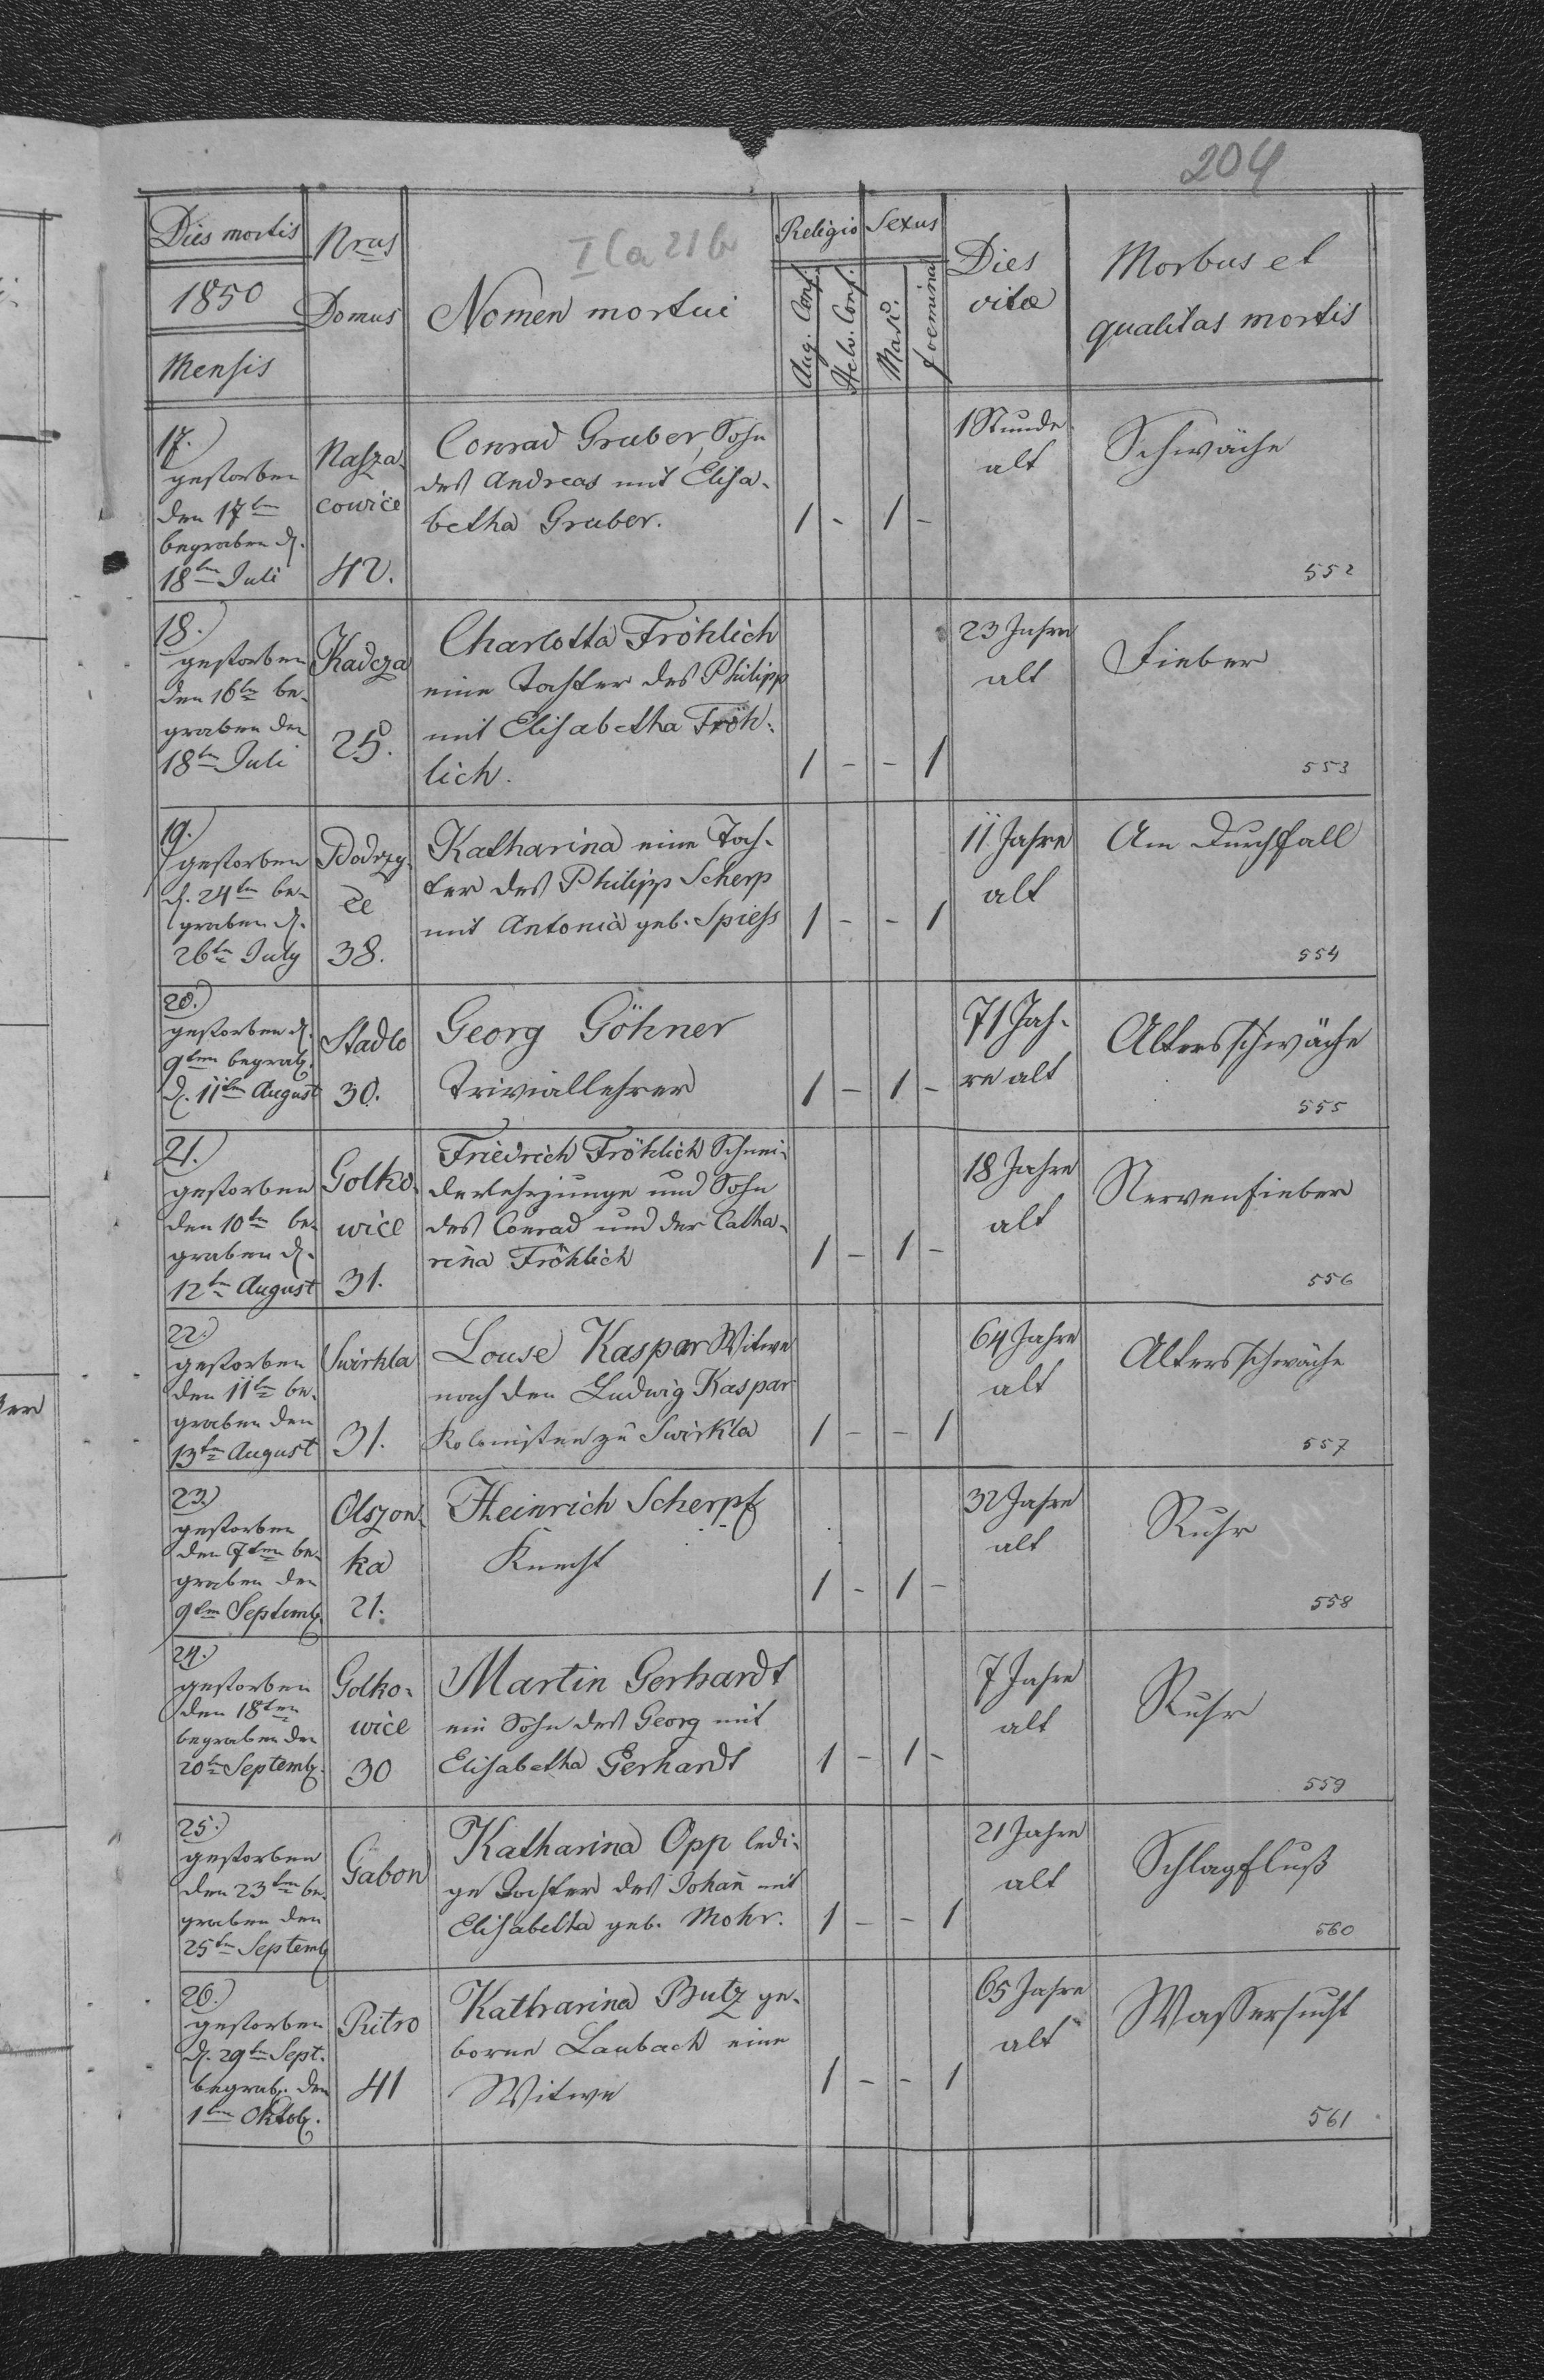 204
I Ca 21 b
Dies mortis
1850
Mensis
Nrus
Domus
Nomen mortui
Religio
Aug. Conf.
Helv. Conf.
Sexus
Masc.
foemina
Dies
vitæ
Morbus et
qualitas mortis
17.
gestorben
den 17ten
begraben d.
18ten Juli
Nasza-
cowice
42.
Conrad Gruber, Sohn
des Andreas mit Elisa-
betha Gruber.
1 - 1 -
1 Stunde
alt
Schwäche
552
18.
gestorben
den 16ten be-
graben den
18ten Juli
Kadcza
25.
Charlotta Fröhlich
eine Tochter des Philipp
mit Elisabetha Fröh-
lich.
1 - - 1
23 Jahre
alt
Fieber
553
19.
gestorben
d. 24ten be-
graben d.
26ten July
Podrzy-
ce
38.
Katharina eine Toch-
ter des Philipp Scherp
mit Antonia geb. Spiess
1 - - 1
11 Jahre
alt
Am Durchfall
554
20.
gestorben d.
9ten begrab.
d. 11ten August
Stadlo
30.
Georg Göhner
Triviallehrer
1 - 1 -
71 Jah-
re alt
Altersschwäche
555
21.
gestorben
den 10ten be-
graben d.
12ten August
Golko-
wice
31.
Friedrich Fröhlich Schnei-
derlehrjunge und Sohn
des Conrad und der Catha-
rina Fröhlich
1 - 1 -
18 Jahre
alt
Nervenfieber
556
22.
gestorben
den 11ten be-
graben den
13ten August
Swirkla
31.
Louse Kaspar Witwe
nach den Ludwig Kaspar
Kolonisten zu Swirkla
1 - - 1
64 Jahre
alt
Altersschwäche
557
23.
gestorben
den 7ten be-
graben den
9ten Septemb.
Olszon-
ka
21.
Heinrich Scherpf
Knecht
1 - 1 -
32 Jahre
alt
Ruhr
558
24.
gestorben
den 18ten
begraben den
20ten Septemb.
Golko-
wice
30
Martin Gerhardt
ein Sohn des Georg mit
Elisabetha Gerhardt
1 - 1 -
7 Jahre
alt
Ruhr
559
25.
gestorben
den 23ten be-
graben den
25ten Septemb
Gabon
Katharina Opp ledi-
ge Tochter des Johañ mit
Elisabetha geb. Mohr.
1 - - 1
21 Jahre
alt
Schlagfluß
560
26.
gestorben
d. 29ten Sept.
begrab. den
1ten Oktob.
Ritro
41
Katharina Butz ge-
borne Laubach eine
Witwe
1 - - 1
65 Jahre
alt
Wassersucht
561